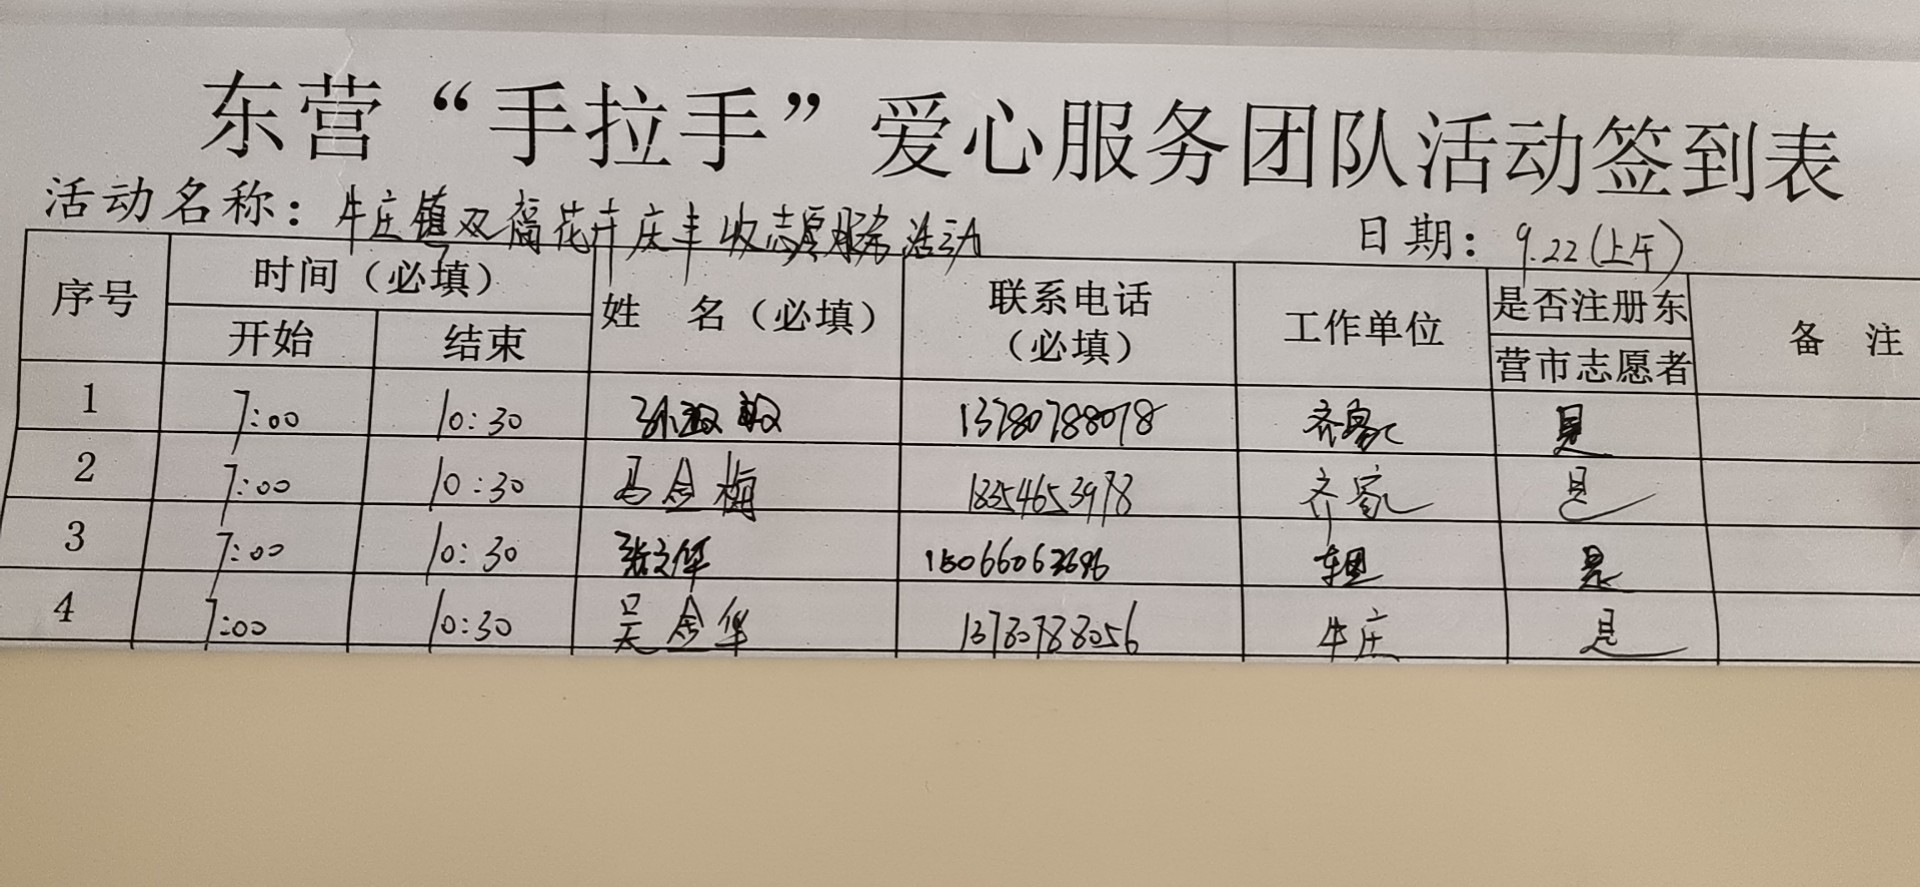 东营“手拉手”爱心服务团队活动签到表
活动名称：牛庄镇双福花卉庆丰收志愿服务活动 日期：9.22(上午)
序号 时间（必填） 姓 名（必填） 联系电话（必填） 工作单位 是否注册东营市志愿者 备 注
开始 结束
1 7:00 10:30 13780788078 齐家 是
2 7:00 10:30 马金梅 18354653978 齐家 是
3 7:00 10:30 张文华 是
4 7:00 10:30 吴金华 13780788056 牛庄 是